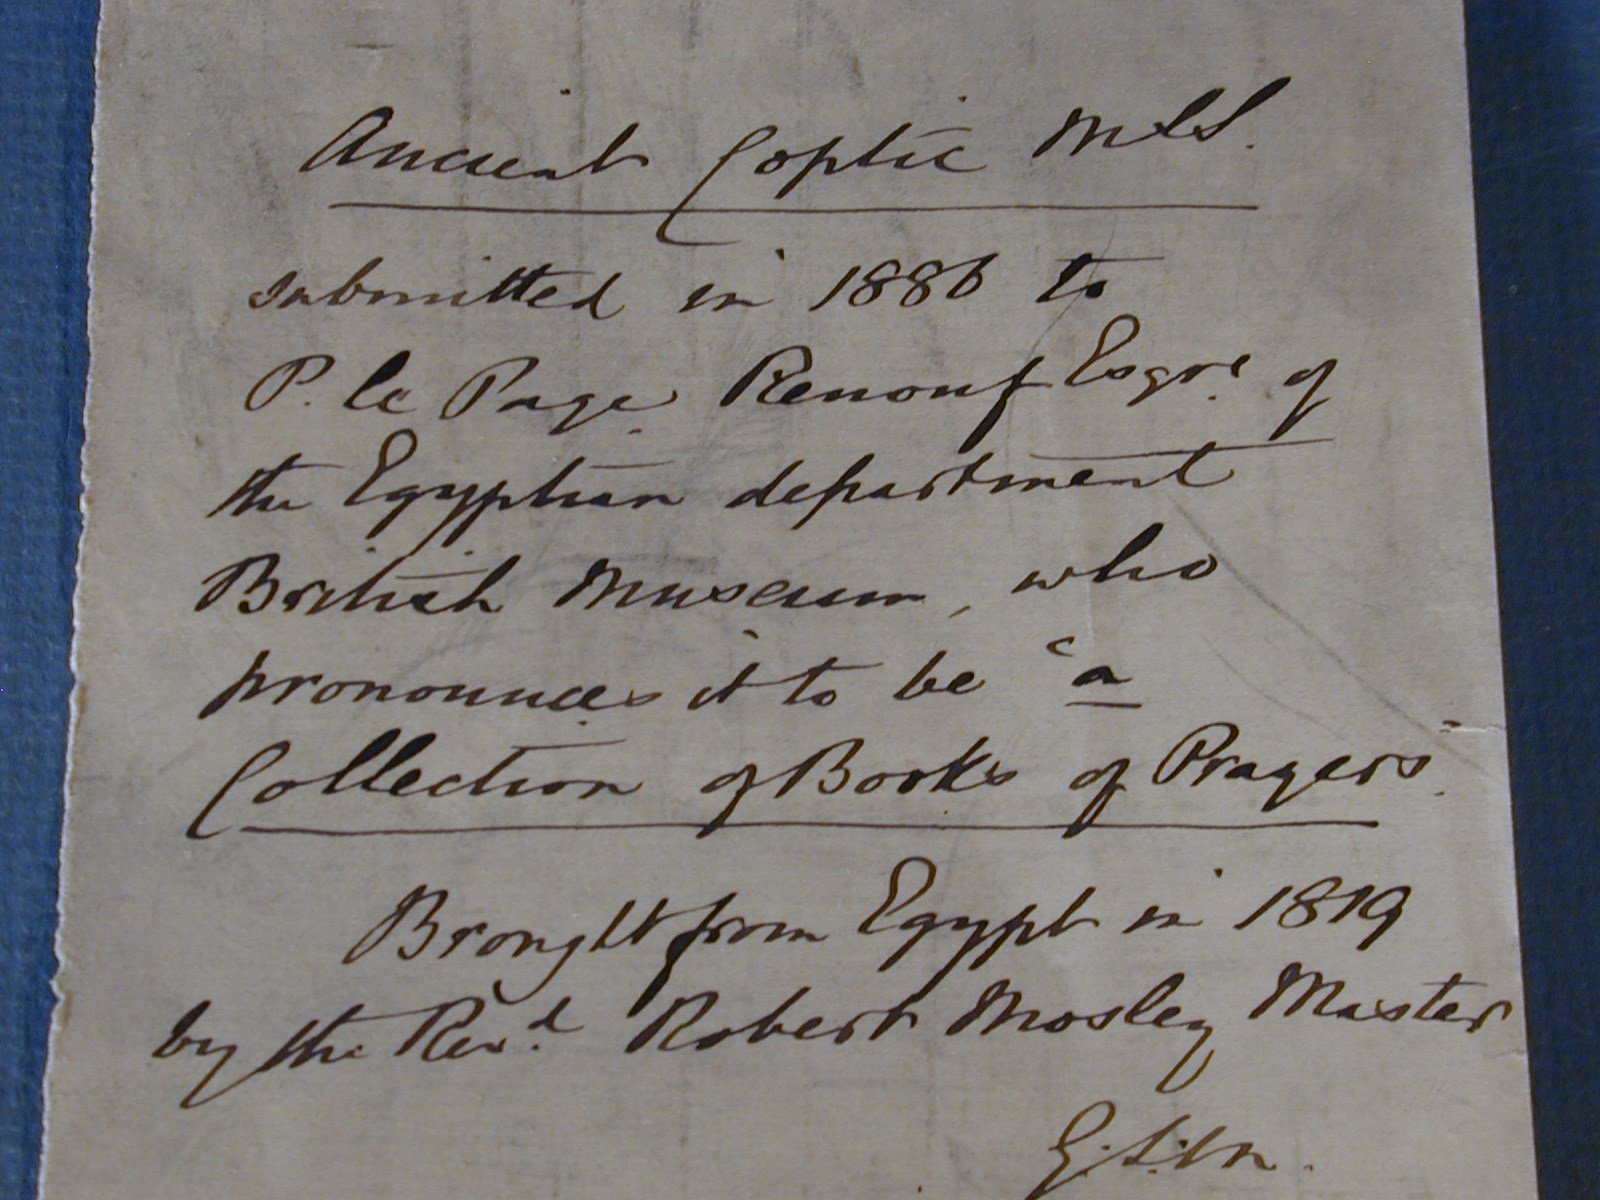 Ancient Coptic MSS.
submitted in 1886 to
P. le Page Renouf Esqre. of
the Egyptian department
British Museum, who
pronounces it to be "a
Collection of Books of Prayers".
Brought from Egypt in 1819
by the Revd. Robert Mosley Master